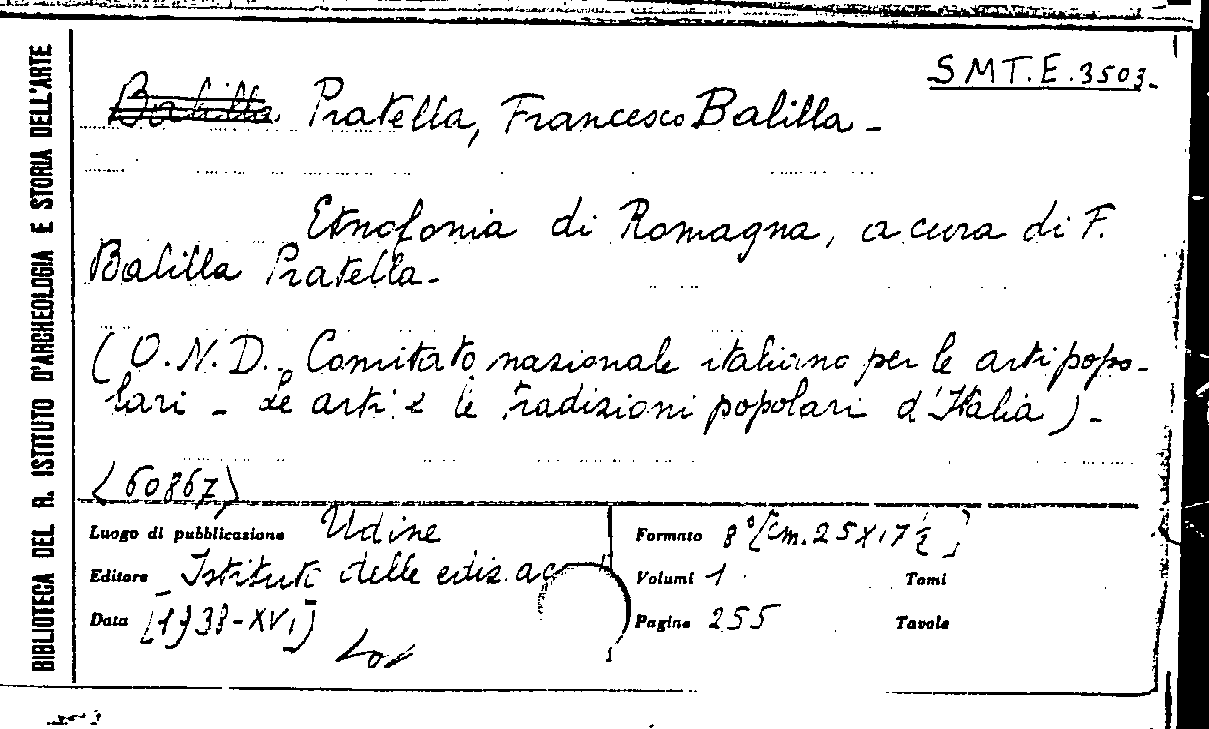 BIBLIOTECA DEL R. ISTITUTO D'ARCHEOLOGIA E STORIA DELL'ARTE
SMT.E.3503.
Balilla Pratella, Francesco Balilla -
Etnofonia di Romagna, a cura di F.
Balilla Pratella -
(O.N.D. Comitato nazionale italiano per le arti popo-
lari - Le arti e le tradizioni popolari d'Italia) -
(60867)
Luogo di pubblicazione Udine
Formato 8° [cm. 25x17½]
Editore Istituti delle ediz. acc
Volumi 1 Tomi
Data [1938-XVI]
Pagine 255 Tavole